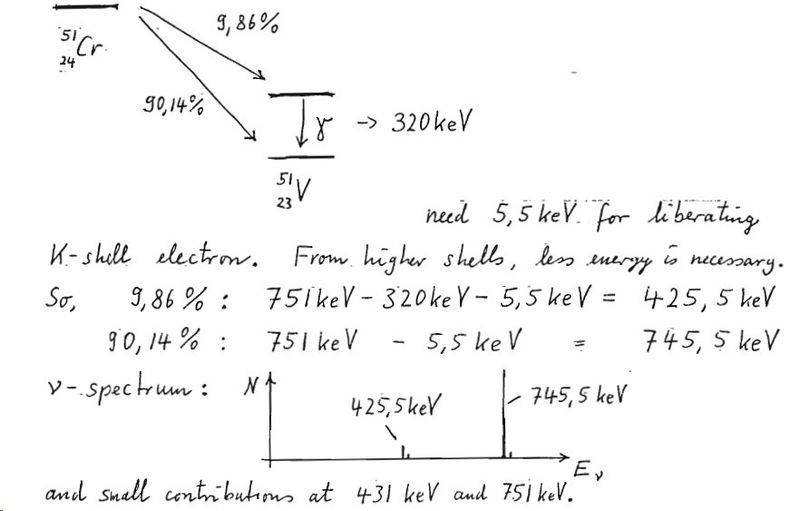 9,86%
⁵¹₂₄Cr
90,14%
γ → 320 keV
⁵¹₂₃V
need 5,5 keV for liberating
K-shell electron. From higher shells, less energy is necessary.
So, 9,86% : 751 keV - 320 keV - 5,5 keV = 425,5 keV
90,14% : 751 keV - 5,5 keV = 745,5 keV
ν-spectrum : N 425,5 keV 745,5 keV
Eν
and small contributions at 431 keV and 751 keV.